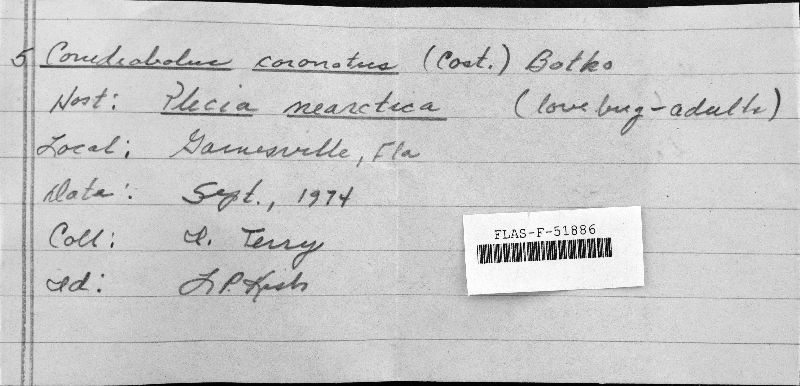 5 Conidiobolus coronatus (Cost.) Batko
Host: Plecia nearctica (lovebug-adults)
Local: Gainesville, Fla
Date: Sept., 1974
Coll: I. Terry
Id:
FLAS-F-51886